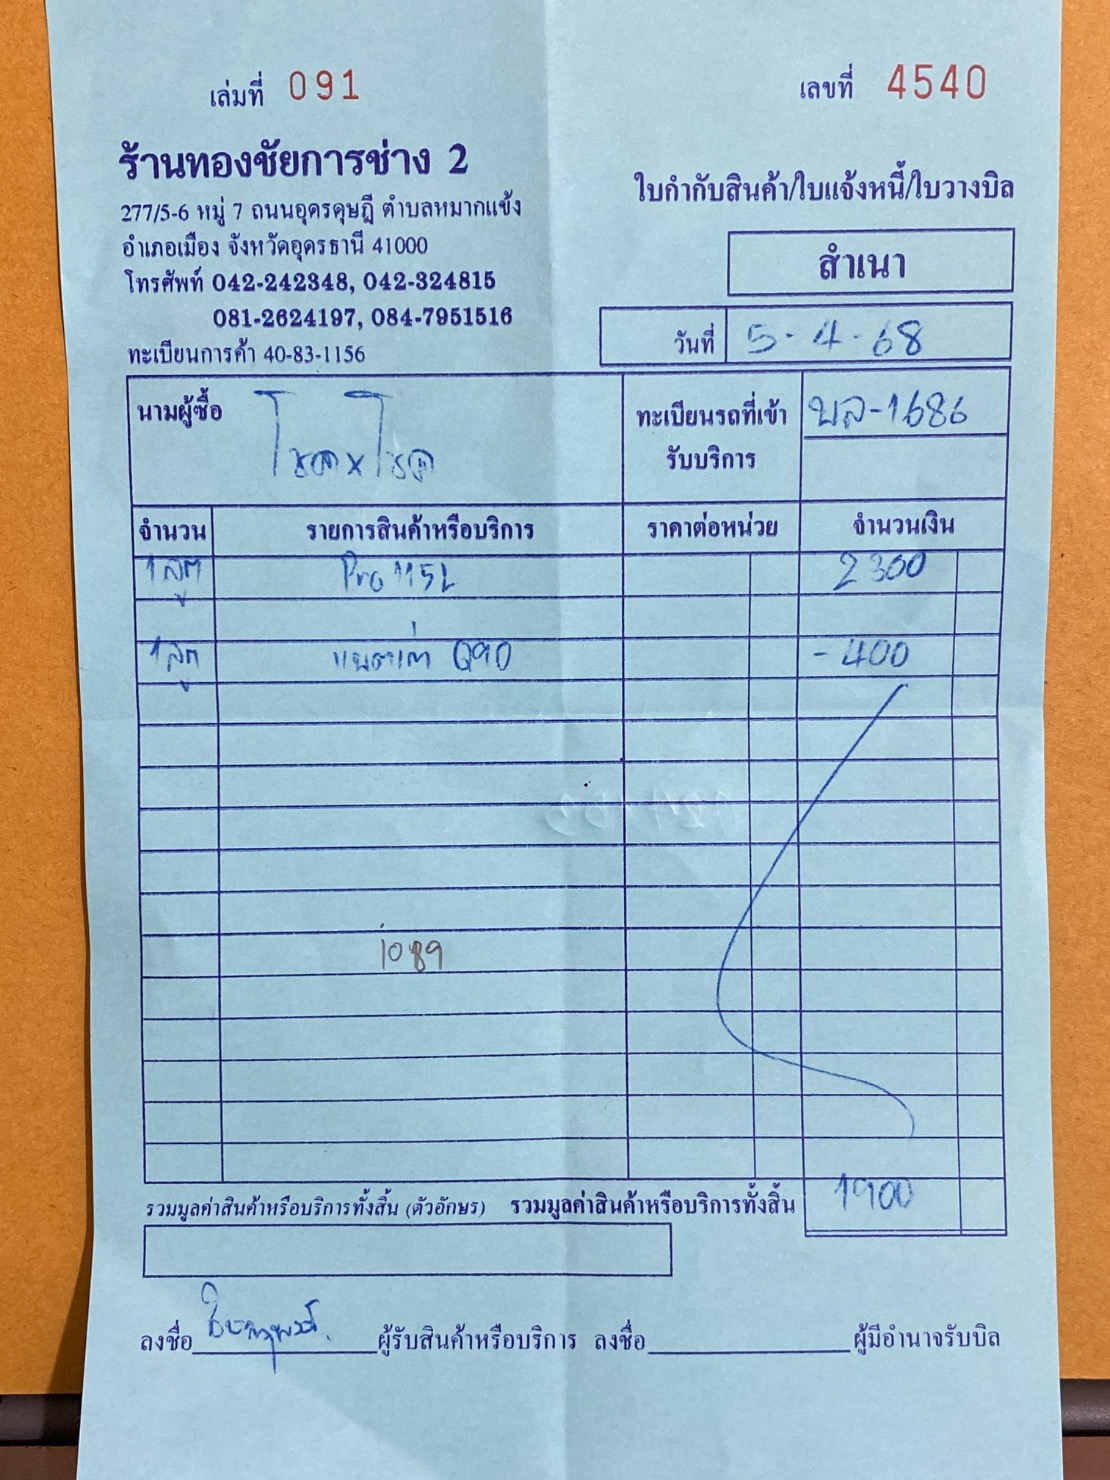 เล่มที่ 091
เลขที่ 4540
ร้านทองชัยการช่าง 2
277/5-6 หมู่ 7 ถนนอุดรดุษฎี ตำบลหมากแข้ง
อำเภอเมือง จังหวัดอุดรธานี 41000
โทรศัพท์ 042-242348, 042-324815
081-2624197, 084-7951516
ทะเบียนการค้า 40-83-1156
ใบกำกับสินค้า/ใบแจ้งหนี้/ใบวางบิล
สำเนา
วันที่ 5-4-68
นามผู้ซื้อ โชคxโชค
ทะเบียนรถที่เข้ารับบริการ บล-1686
จำนวน รายการสินค้าหรือบริการ ราคาต่อหน่วย จำนวนเงิน
1 ลูก Pro 115L 2300
1 ลูก แบตเก่า Q90 -400
1089
รวมมูลค่าสินค้าหรือบริการทั้งสิ้น (ตัวอักษร) รวมมูลค่าสินค้าหรือบริการทั้งสิ้น 1900
ลงชื่อ ผู้รับสินค้าหรือบริการ ลงชื่อ ผู้มีอำนาจรับบิล